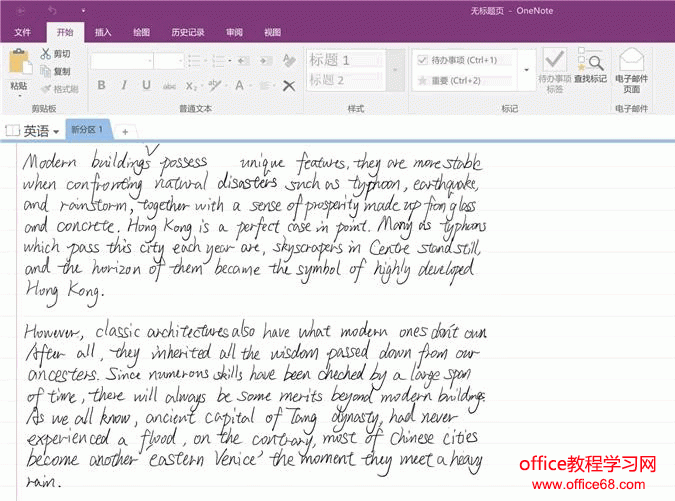 无标题页 - OneNote
文件 开始 插入 绘图 历史记录 审阅 视图
剪切
复制
格式刷
粘贴
B I U abc X₂ A
标题 1
标题 2
待办事项 (Ctrl+1)
重要 (Ctrl+2)
待办事项标签
查找标记
电子邮件页面
剪贴板 普通文本 样式 标记 电子邮件
英语 新分区 1 +
Modern buildings possess unique features, they are more stable
when confronting natural disasters such as typhoon, earthquake,
and rainstorm, together with a sense of prosperity made up from glass
and concrete. Hong Kong is a perfect case in point. Many as typhoons
which pass this city each year are, skyscrapers in Centre stand still,
and the horizon of them became the symbol of highly developed
Hong Kong.
However, classic architectures also have what modern ones don't own
After all, they inherited all the wisdom passed down from our
ancesters. Since numerous skills have been checked by a large span
of time, there will always be some merits beyond modern buildings.
As we all know, ancient capital of Tang dynasty, had never
experienced a flood, on the contrary, most of Chinese cities
become another 'eastern Venice' the moment they meet a heavy
rain.
office教程学习网
www.office68.com